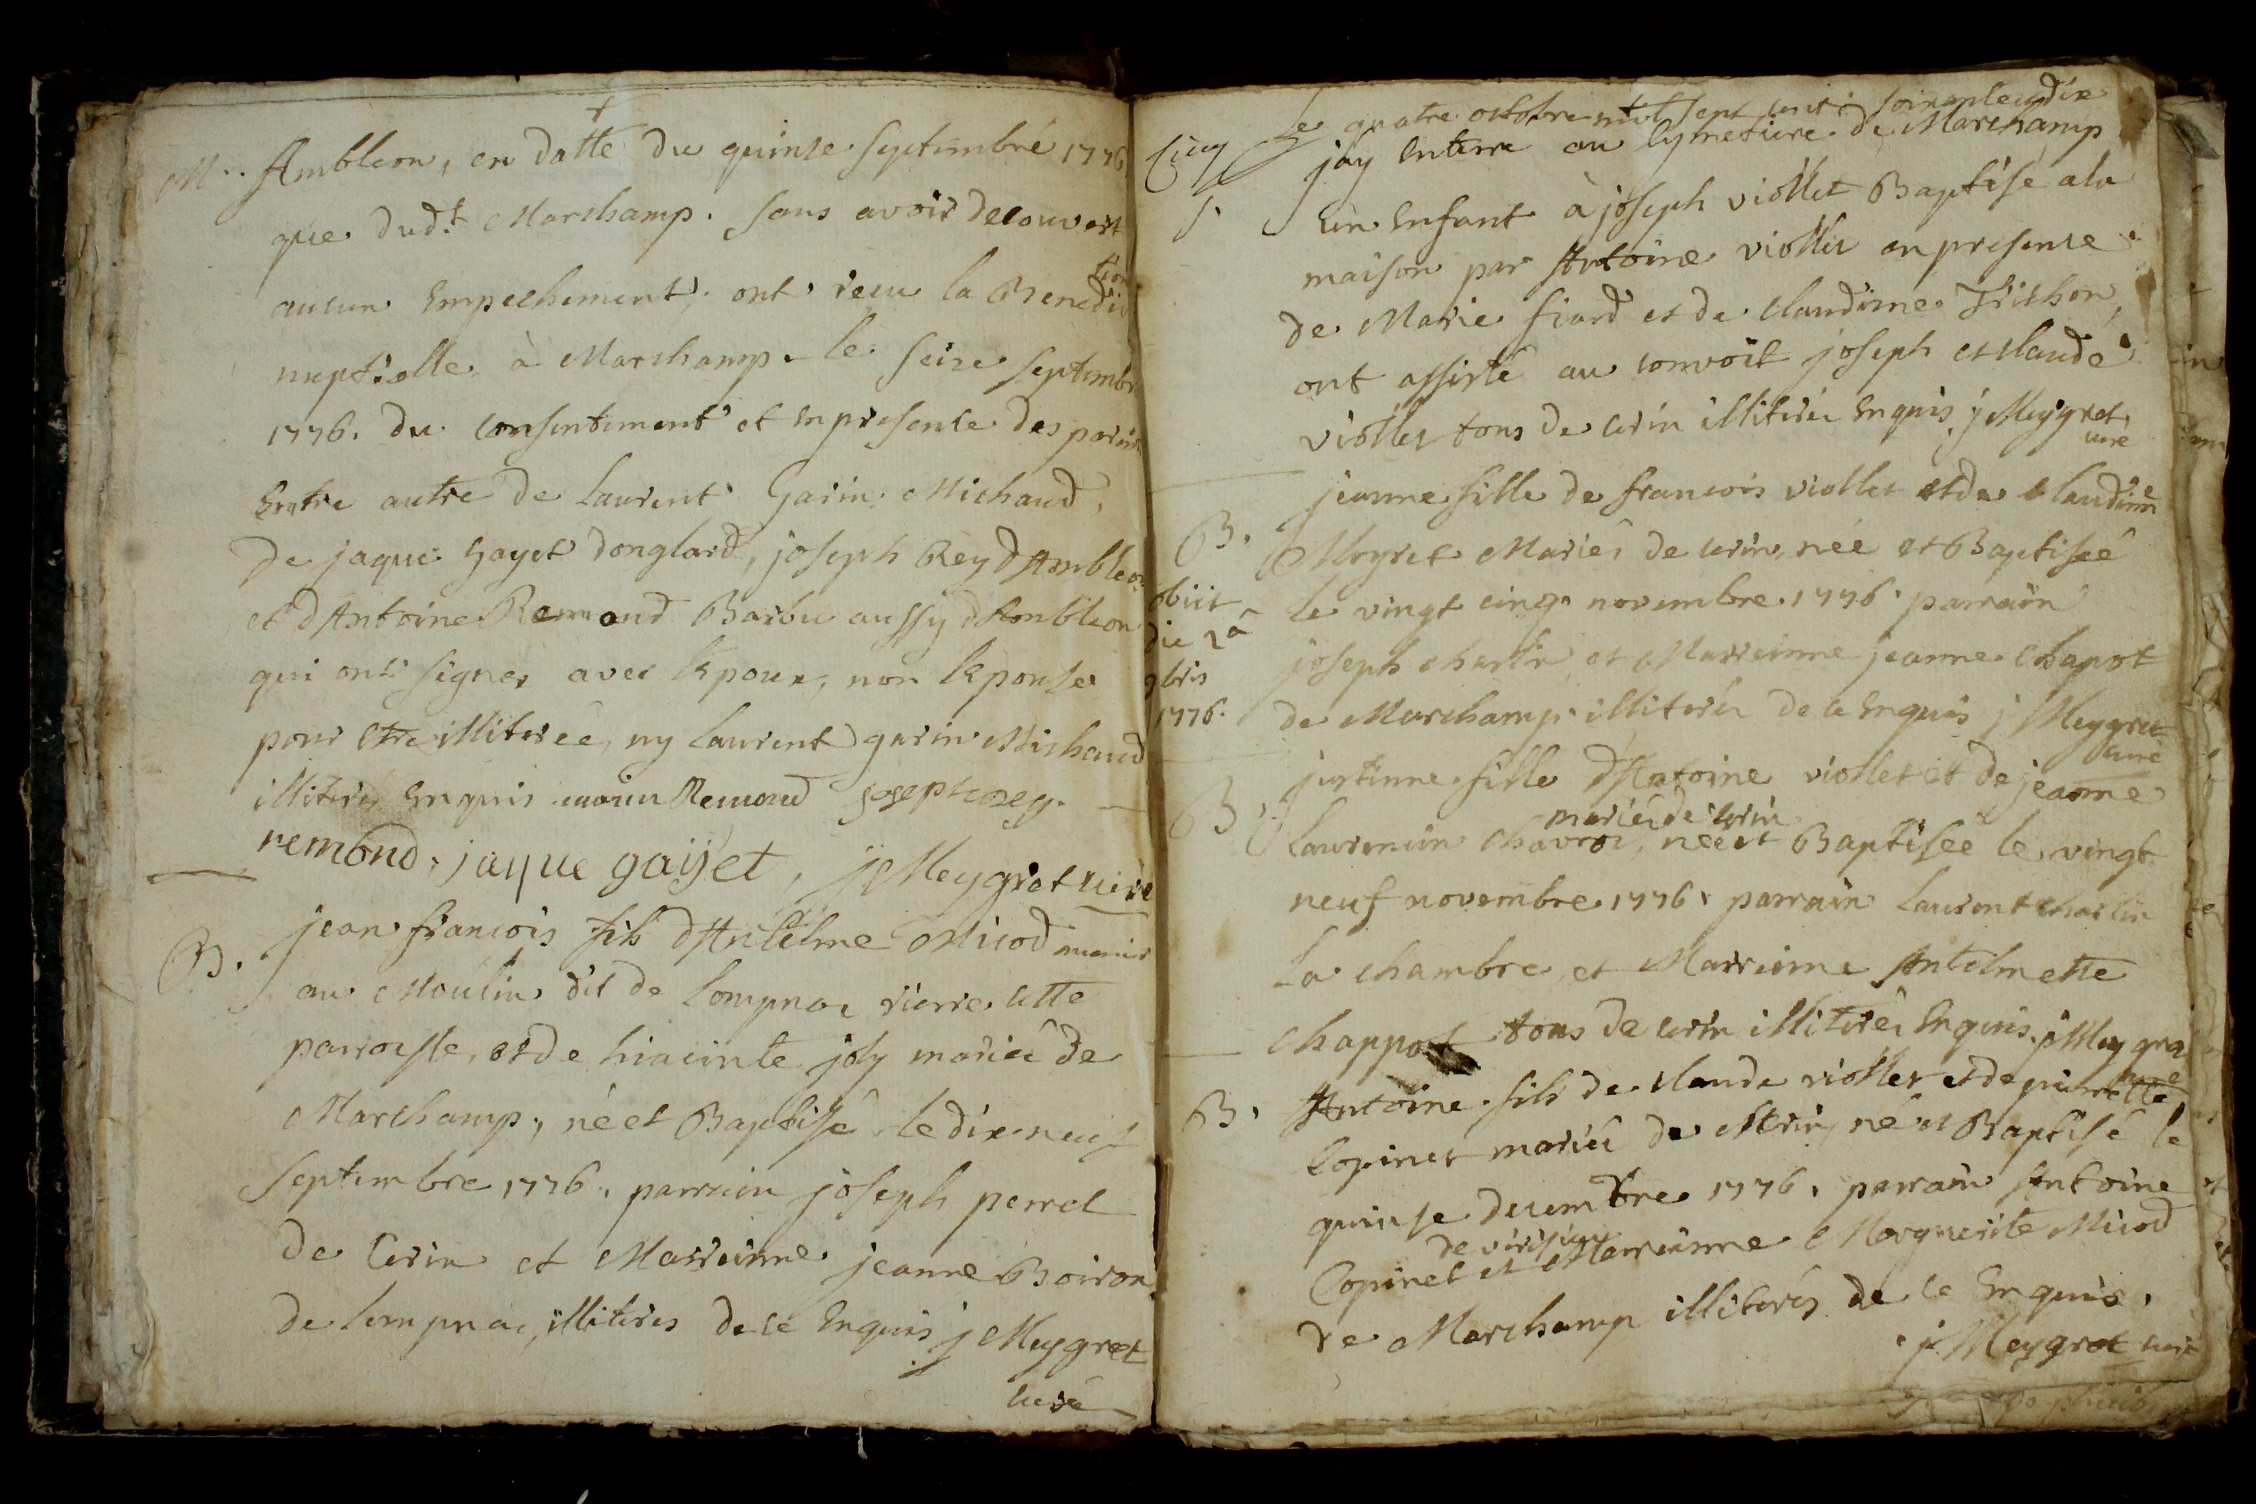 M.. Ambleon, en datte du quinse septembre 1776
que dudt Marchamp. sans avoir decouvert
aucun Empechement, ont recu la Benediction
nuptialle à Marchamp. le seize septembre
1776. du consentement et en presence des parens
Entre autre de Laurent Garin Michaud,
de jaque Gayet donglard, joseph Rey dAmbleon
et dAntoine Remond Barbu aussy dAmbleon
qui ont signes avec lepoux, non lepouse
pour etre illiterée, ny Laurent garin Michaud
illiteré Enquis Remond joseph Rey.
remond, jaque gaÿet, j Meygret curé
B. jean francois fils dAntelme Micod
au Moulin dit de Lompnas riere cette
parroisse, et de hiacinte joly mariés de
Marchamp, né et Baptisé le dix neuf
septembre 1776. parrain joseph perret
de Cerin et Marrainne jeanne Boiron
de Lompnas, illiteres de ce Enquis j Meygret
curé
Le quatre octobre mil sept cent soixante dix
six jay Enterré au Cymetiere de Marchamp
S un Enfant à joseph viollet Baptisé a la
maison par Antoine viollet en presence
de Marie fiard et de Claudine Trichon,
ont assisté au convoit joseph et Claude
viollet tous de Cerin illiterés Enquis, j Meygret
curé
B. jeanne fille de francois viollet et de Claudine
Meyret Mariés de Cerin, née et Baptisée
obiit le vingt cinq novembre 1776. parrain
die
joseph Charlin et Marrainne jeanne Chapot
9bris
1776. de Marchamp illiterés de ce Enquis j Meygret
curé
B. justinne fille dAntoine viollet et de jeanne
mariés de Cerin
Laurencin née et Baptisée le vingt
neuf novembre 1776. parrain Laurent Charlin
La chambre, et Marrainne Antelmette
Chappot tous de Cerin illiterés Enquis. j Meygret
curé
B. Antoine fils de Claude viollet et de pierrette
Copinet mariés de Cerin, né et Baptisé le
quinse decembre 1776. parrain Antoine
de virisieux
Copinet et Marrainne Marguerite Micod
de Marchamp illiterés de ce Enquis.
j Meygret curé